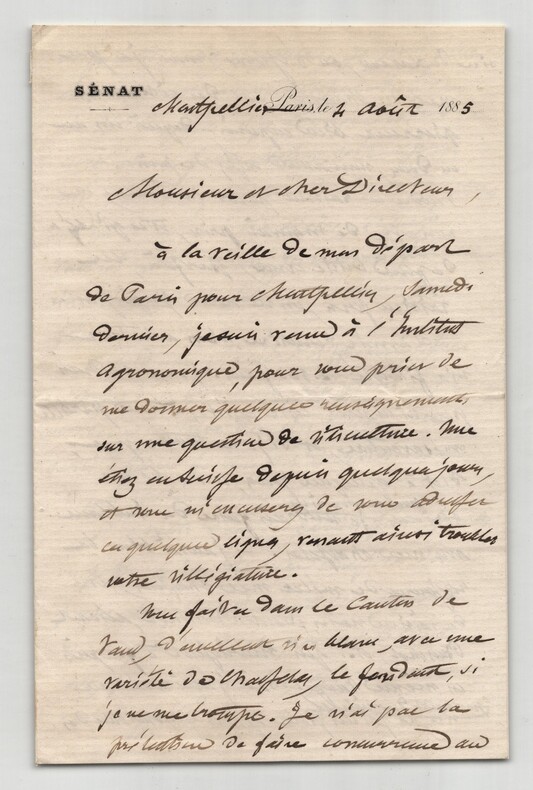 SÉNAT
Montpellier Paris, le 4 août 1885
Monsieur et cher Directeur,
à la veille de mon départ
de Paris pour Montpellier, Samedi
dernier, je suis venu à l'Institut
agronomique, pour vous prier de
me donner quelques renseignements
sur une question de viticulture. Vous
étiez en Suisse depuis quelques jours,
et vous m'excuserez de vous adresser
ces quelques lignes, venant ainsi troubler
votre villégiature.
Vous faites dans le Canton de
Vaud, d'excellent vin blanc, avec une
variété de chasselas, le fendant, si
je ne me trompe. Je n'ai pas la
prétention de faire concurrence au